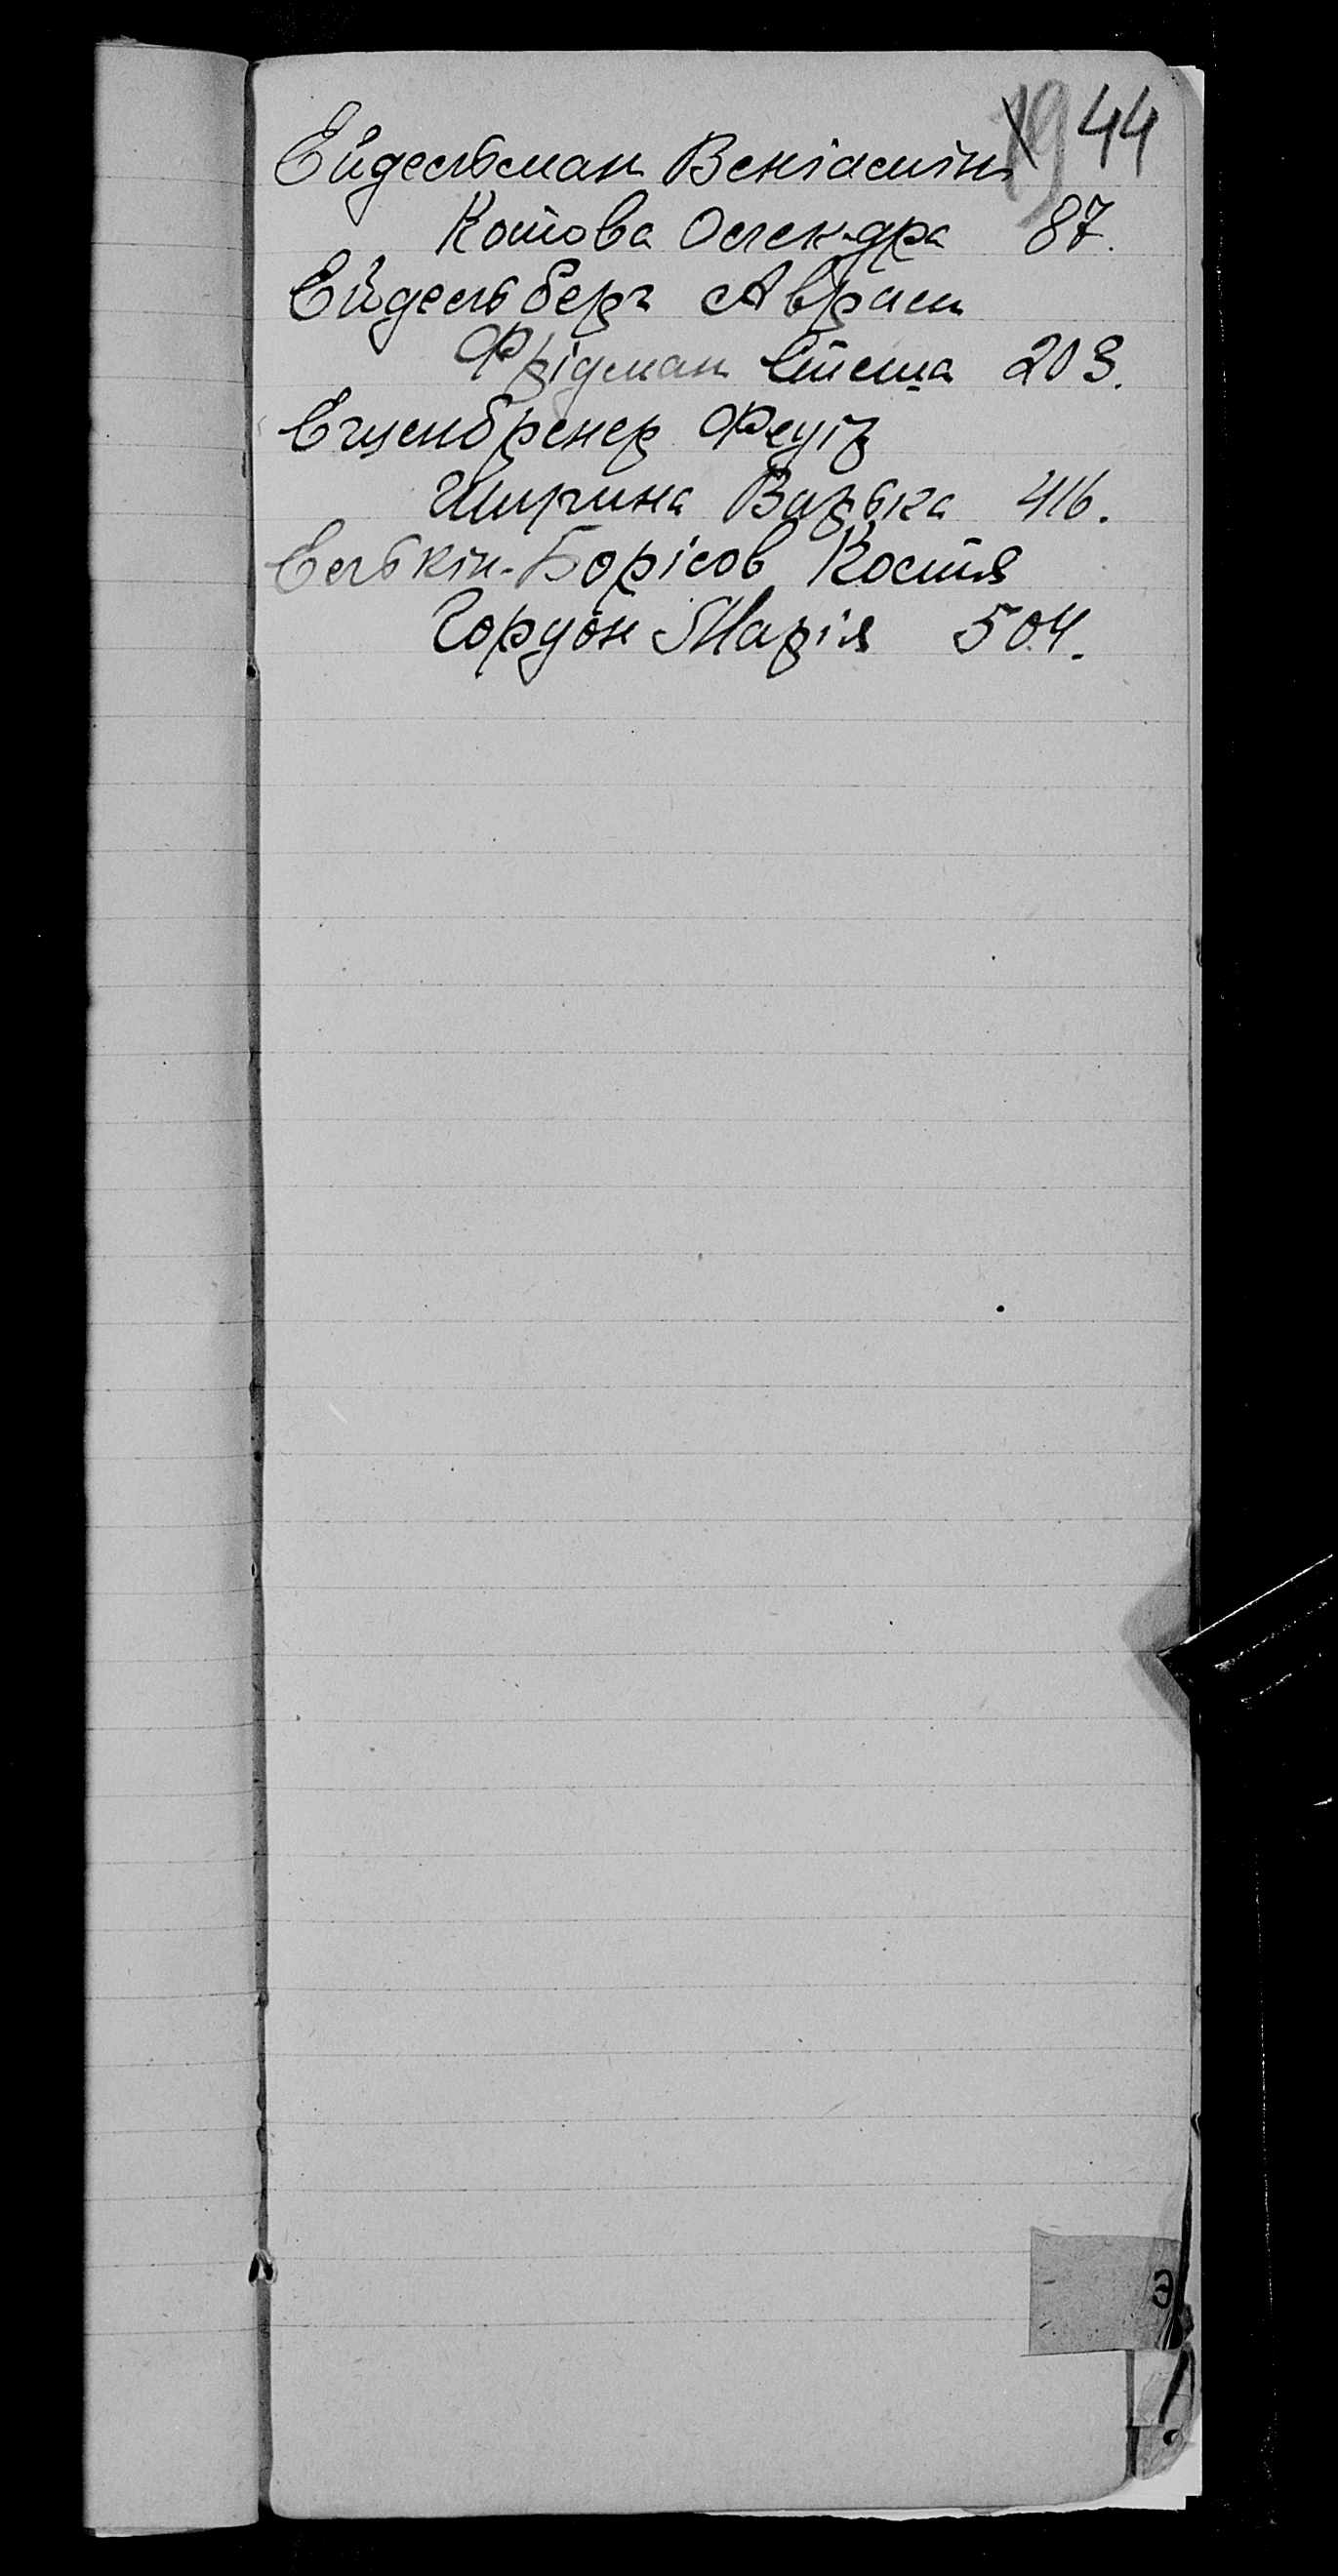 19 44
Ейдельман Веніамін
Котова Олек-дра 87.
Ейдельберг Аврам
Фрідман Етеша 203.
Еценбренер Феуіз
Ширина Варька 416.
Елькін-Борісов Костя
Гордон Марія 504.
Э